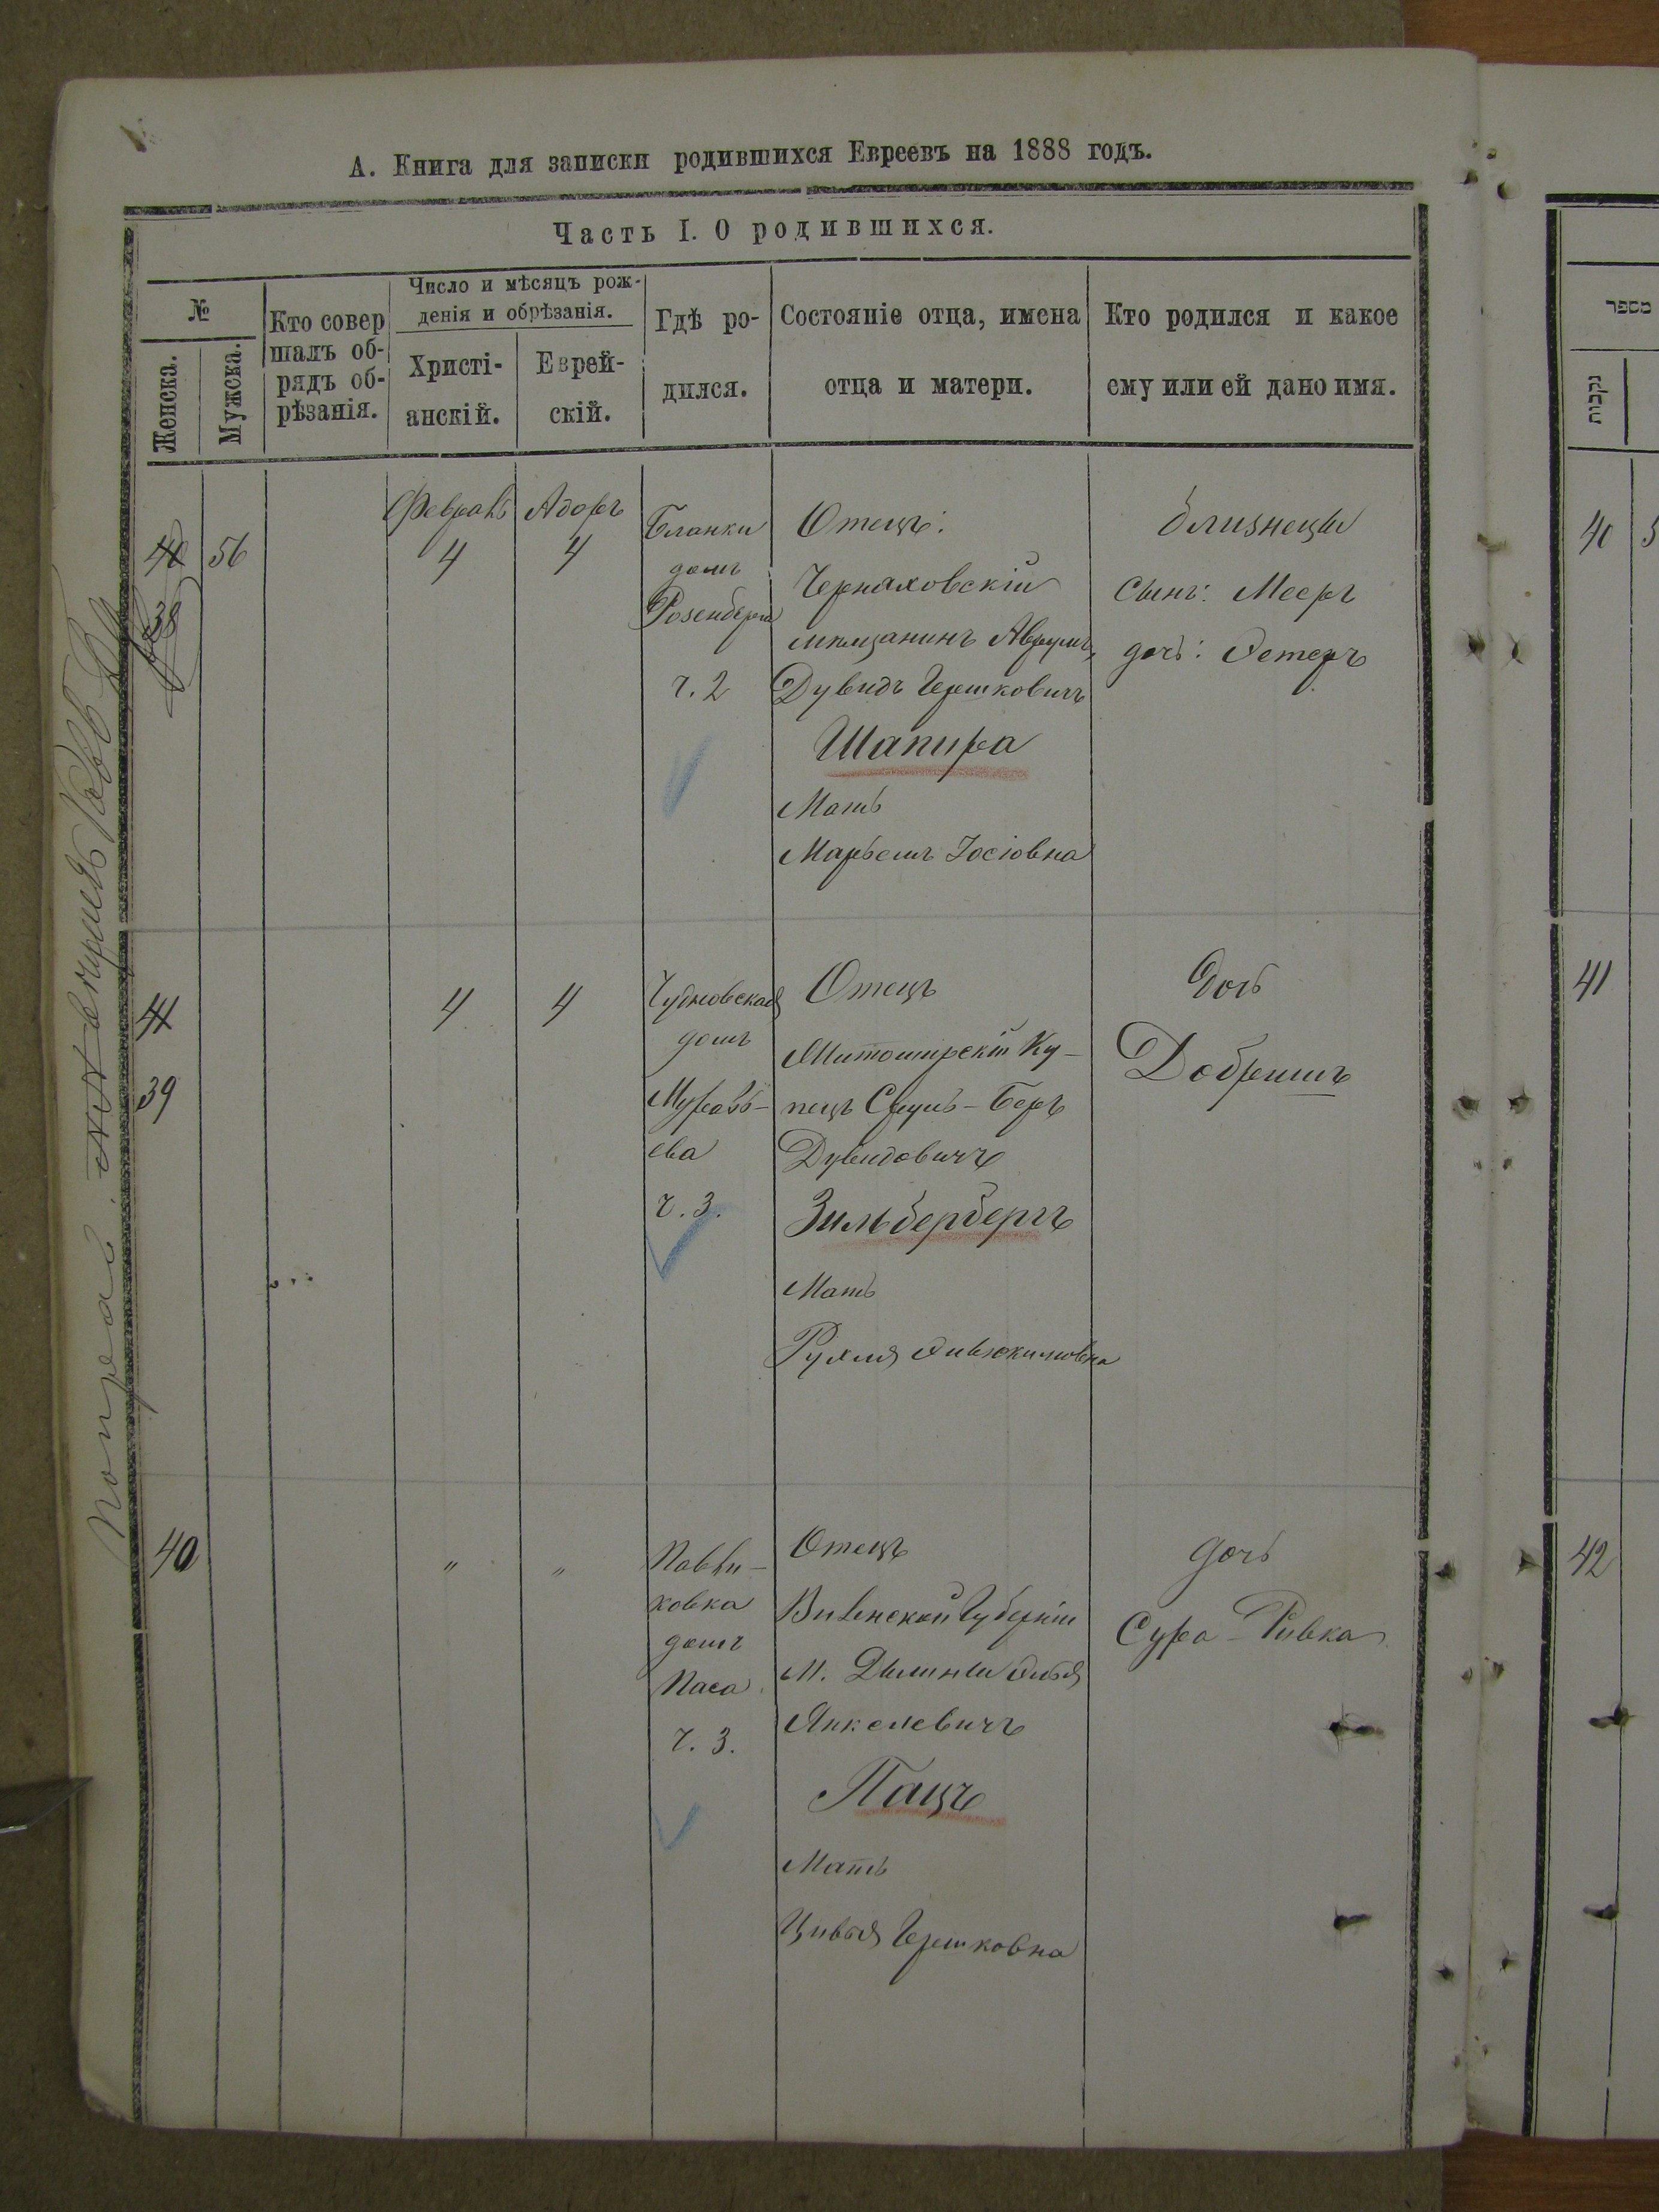 А. Книга для записки родившихся Евреевъ на 1888 годъ.
Часть I. О родившихся.
№
Женска.
Мужска.
Кто совер
шалъ об-
рядъ об-
рѣзанія.
Число и мѣсяцъ рож-
денія и обрѣзанія.
Христі-
анскій.
Еврей-
скій.
Гдѣ ро-
дился.
Состояніе отца, имена
отца и матери.
Кто родился и какое
ему или ей дано имя.
40
38
56
Февраль
4
Адоръ
4
Бланки
домъ
Розенберга
ч. 2
Отецъ:
Черняховскій
мѣщанинъ Аврумъ,
Дувидъ Гершковичъ
Шапира
Мать
Марьемъ Іосіовна
близнецы
Сынъ: Мееръ
дочь: Эстеръ
41
39
4
4
Чудновская
домъ
Муравь-
ева
ч. 3.
Отецъ
Житомирскій Ку-
пецъ Сруль-Беръ
Дувидовичъ
Зильбербергъ
Мать
Рухля
Дочь
Добришъ
40
"
"
Павли-
ковка
домъ
Паса
ч. 3.
Отецъ
Виленской Губерніи
М. Эльья
Янкелевичъ
Пацъ
Мать
Цивья Гершковна
дочь
Сура-Ривка
מספר
נקבות
40
5
41
42